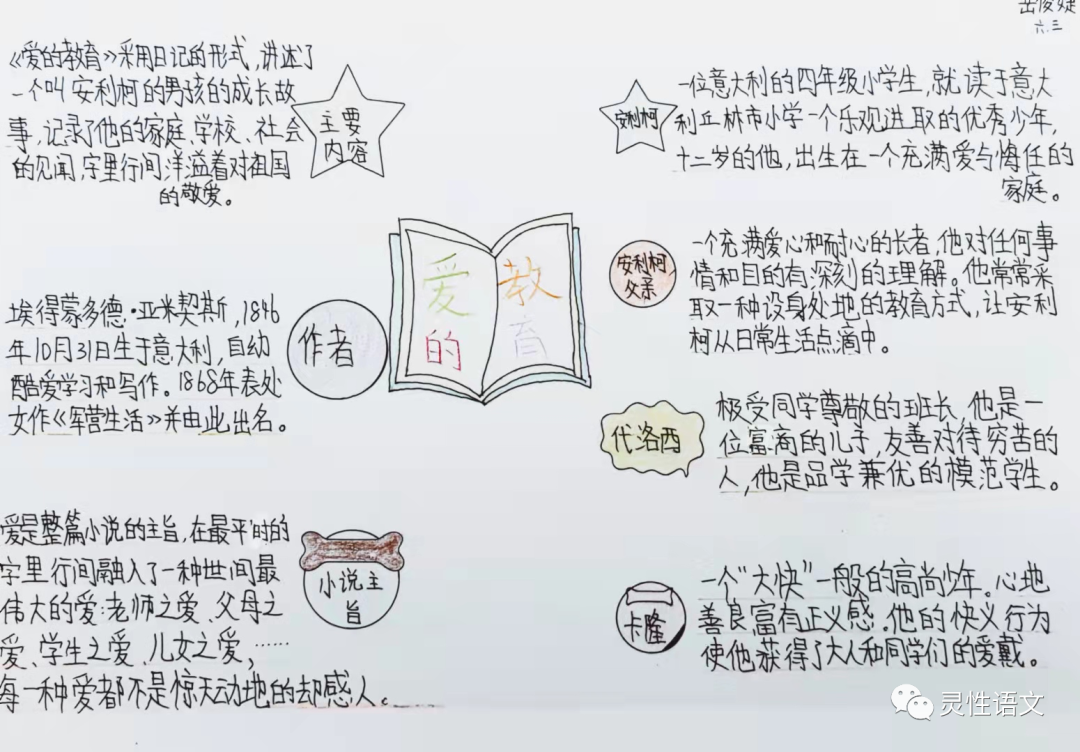 岳俊婕
六.三
《爱的教育》采用日记的形式,讲述了
一个叫安利柯的男孩的成长故
事,记录了他的家庭、学校、社会
的见闻,字里行间洋溢着对祖国
的敬爱。
主要
内容
埃得蒙多德·亚米契斯,1846
年10月31日生于意大利,自幼
酷爱学习和写作。1868年表处
女作《军营生活》并由此出名。
作者
爱是整篇小说的主旨,在最平时的
字里行间融入了一种世间最
伟大的爱:老师之爱、父母之
爱、学生之爱、儿女之爱,……
每一种爱都不是惊天动地的却感人。
小说主
旨
爱的
教育
安利柯
一位意大利的四年级小学生,就读于意大
利丘林市小学一个乐观进取的优秀少年,
十二岁的他,出生在一个充满爱与悔任的
家庭。
安利柯
父亲
一个充满爱心和耐心的长者,他对任何事
情和目的有深刻的理解。他常常采
取一种设身处地的教育方式,让安利
柯从日常生活点滴中。
代洛西
极受同学尊敬的班长,他是一
位富商的儿子,友善对待穷苦的
人,他是品学兼优的模范学生。
卡隆
一个“大快”一般的高尚少年。心地
善良,富有正义感,他的快义行为
使他获得了大人和同学们的爱戴。
灵性语文